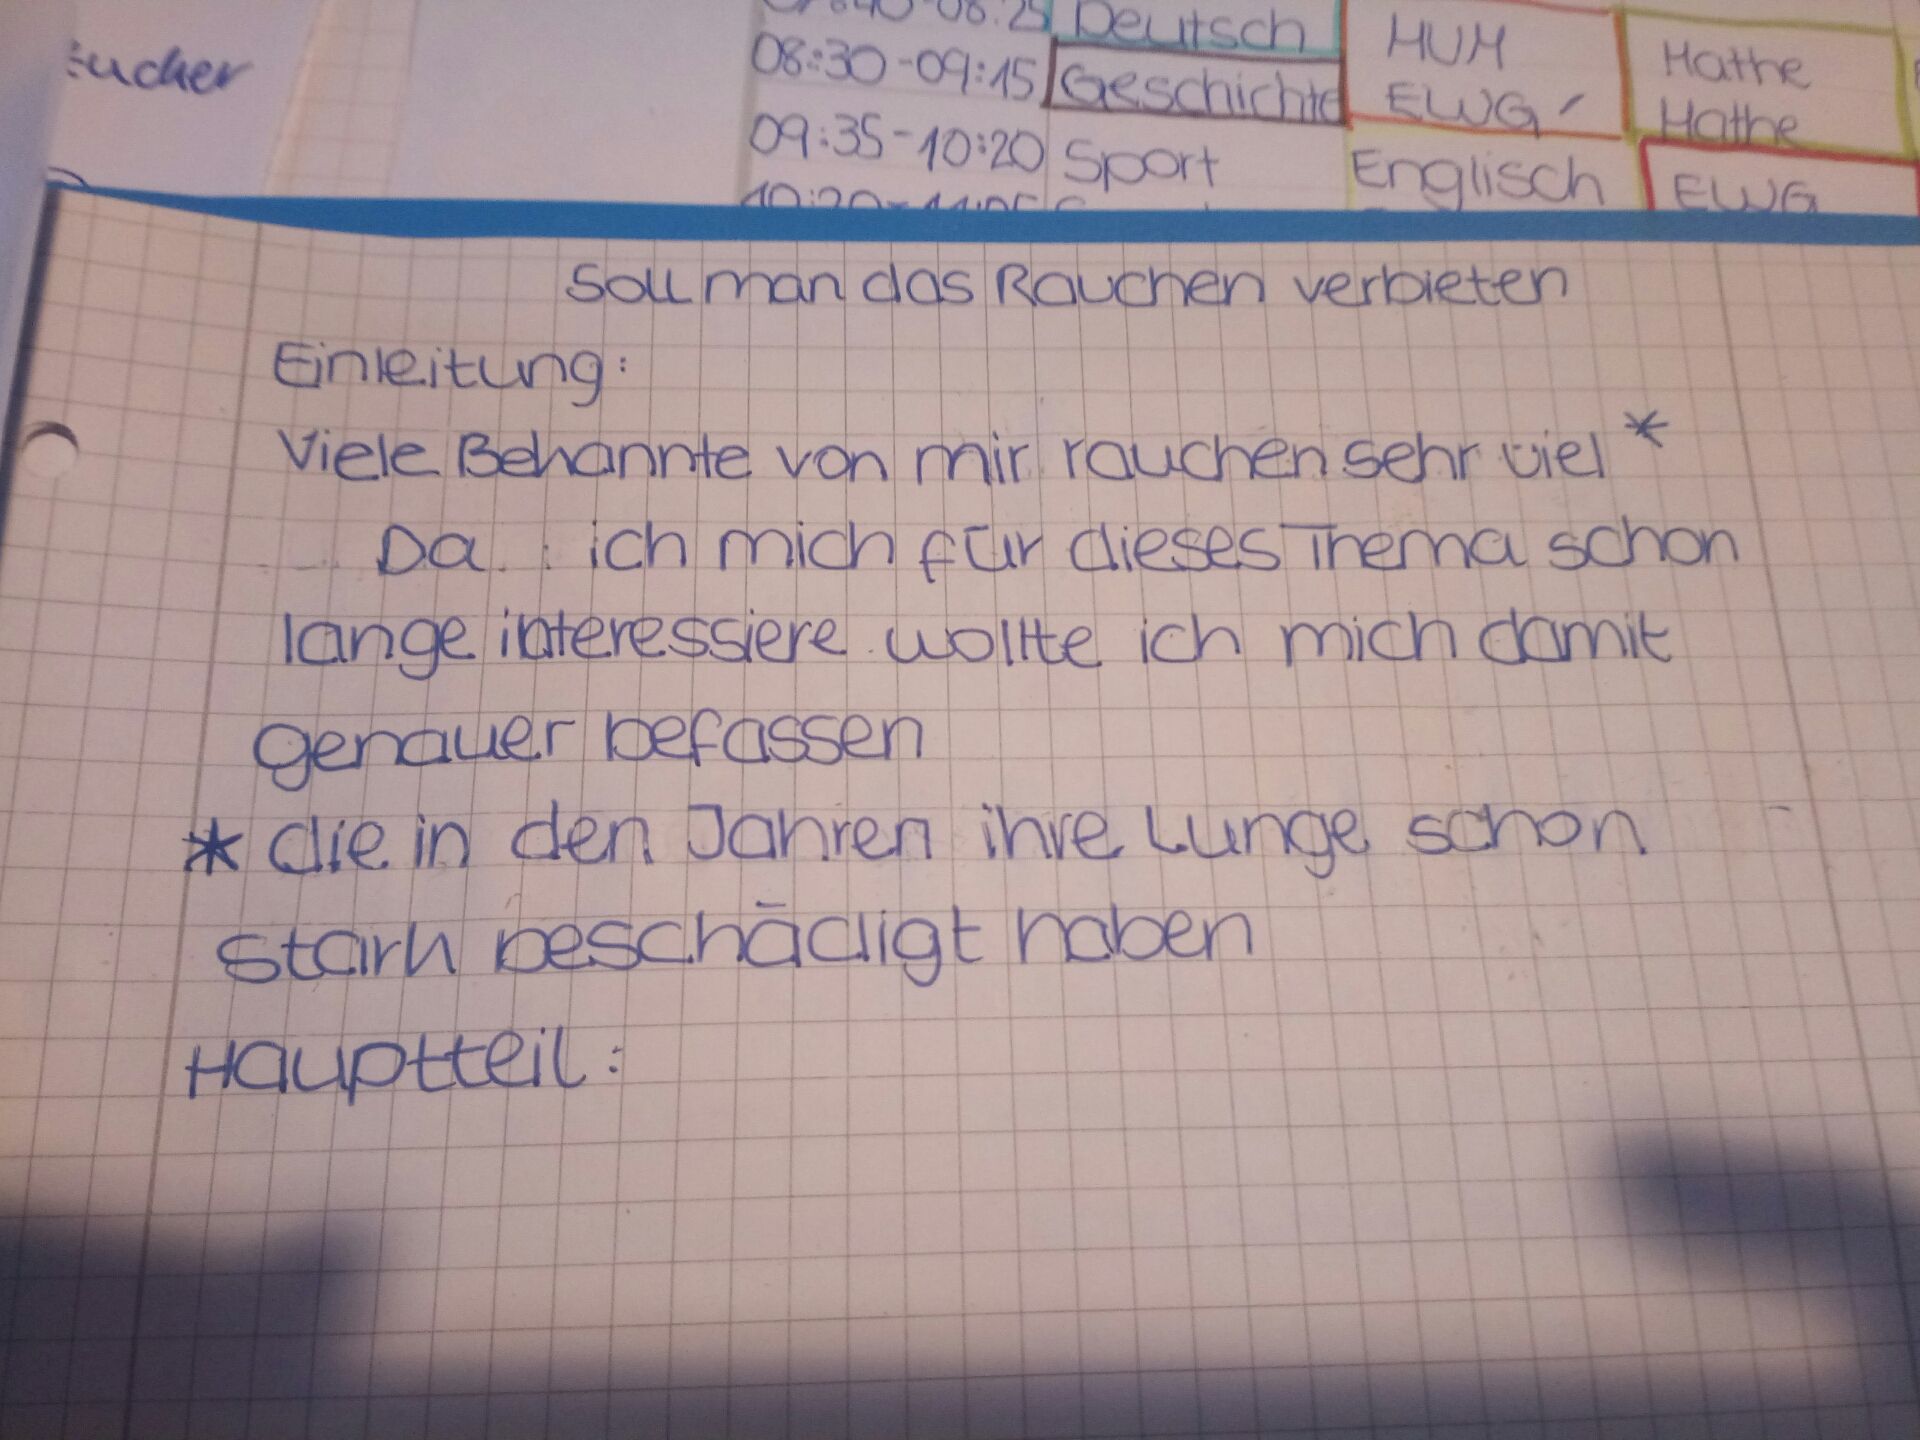 ucher
08:25 Deutsch HUM Mathe
08:30-09:15 Geschichte EWG Mathe
09:35-10:20 Sport Englisch EWG
Soll man das Rauchen verbieten
Einleitung:
Viele Bekannte von mir rauchen sehr viel *
Da ich mich für dieses Thema schon
lange interessiere wollte ich mich damit
genauer befassen
* die in den Jahren ihre Lunge schon
stark beschädigt haben
Hauptteil: